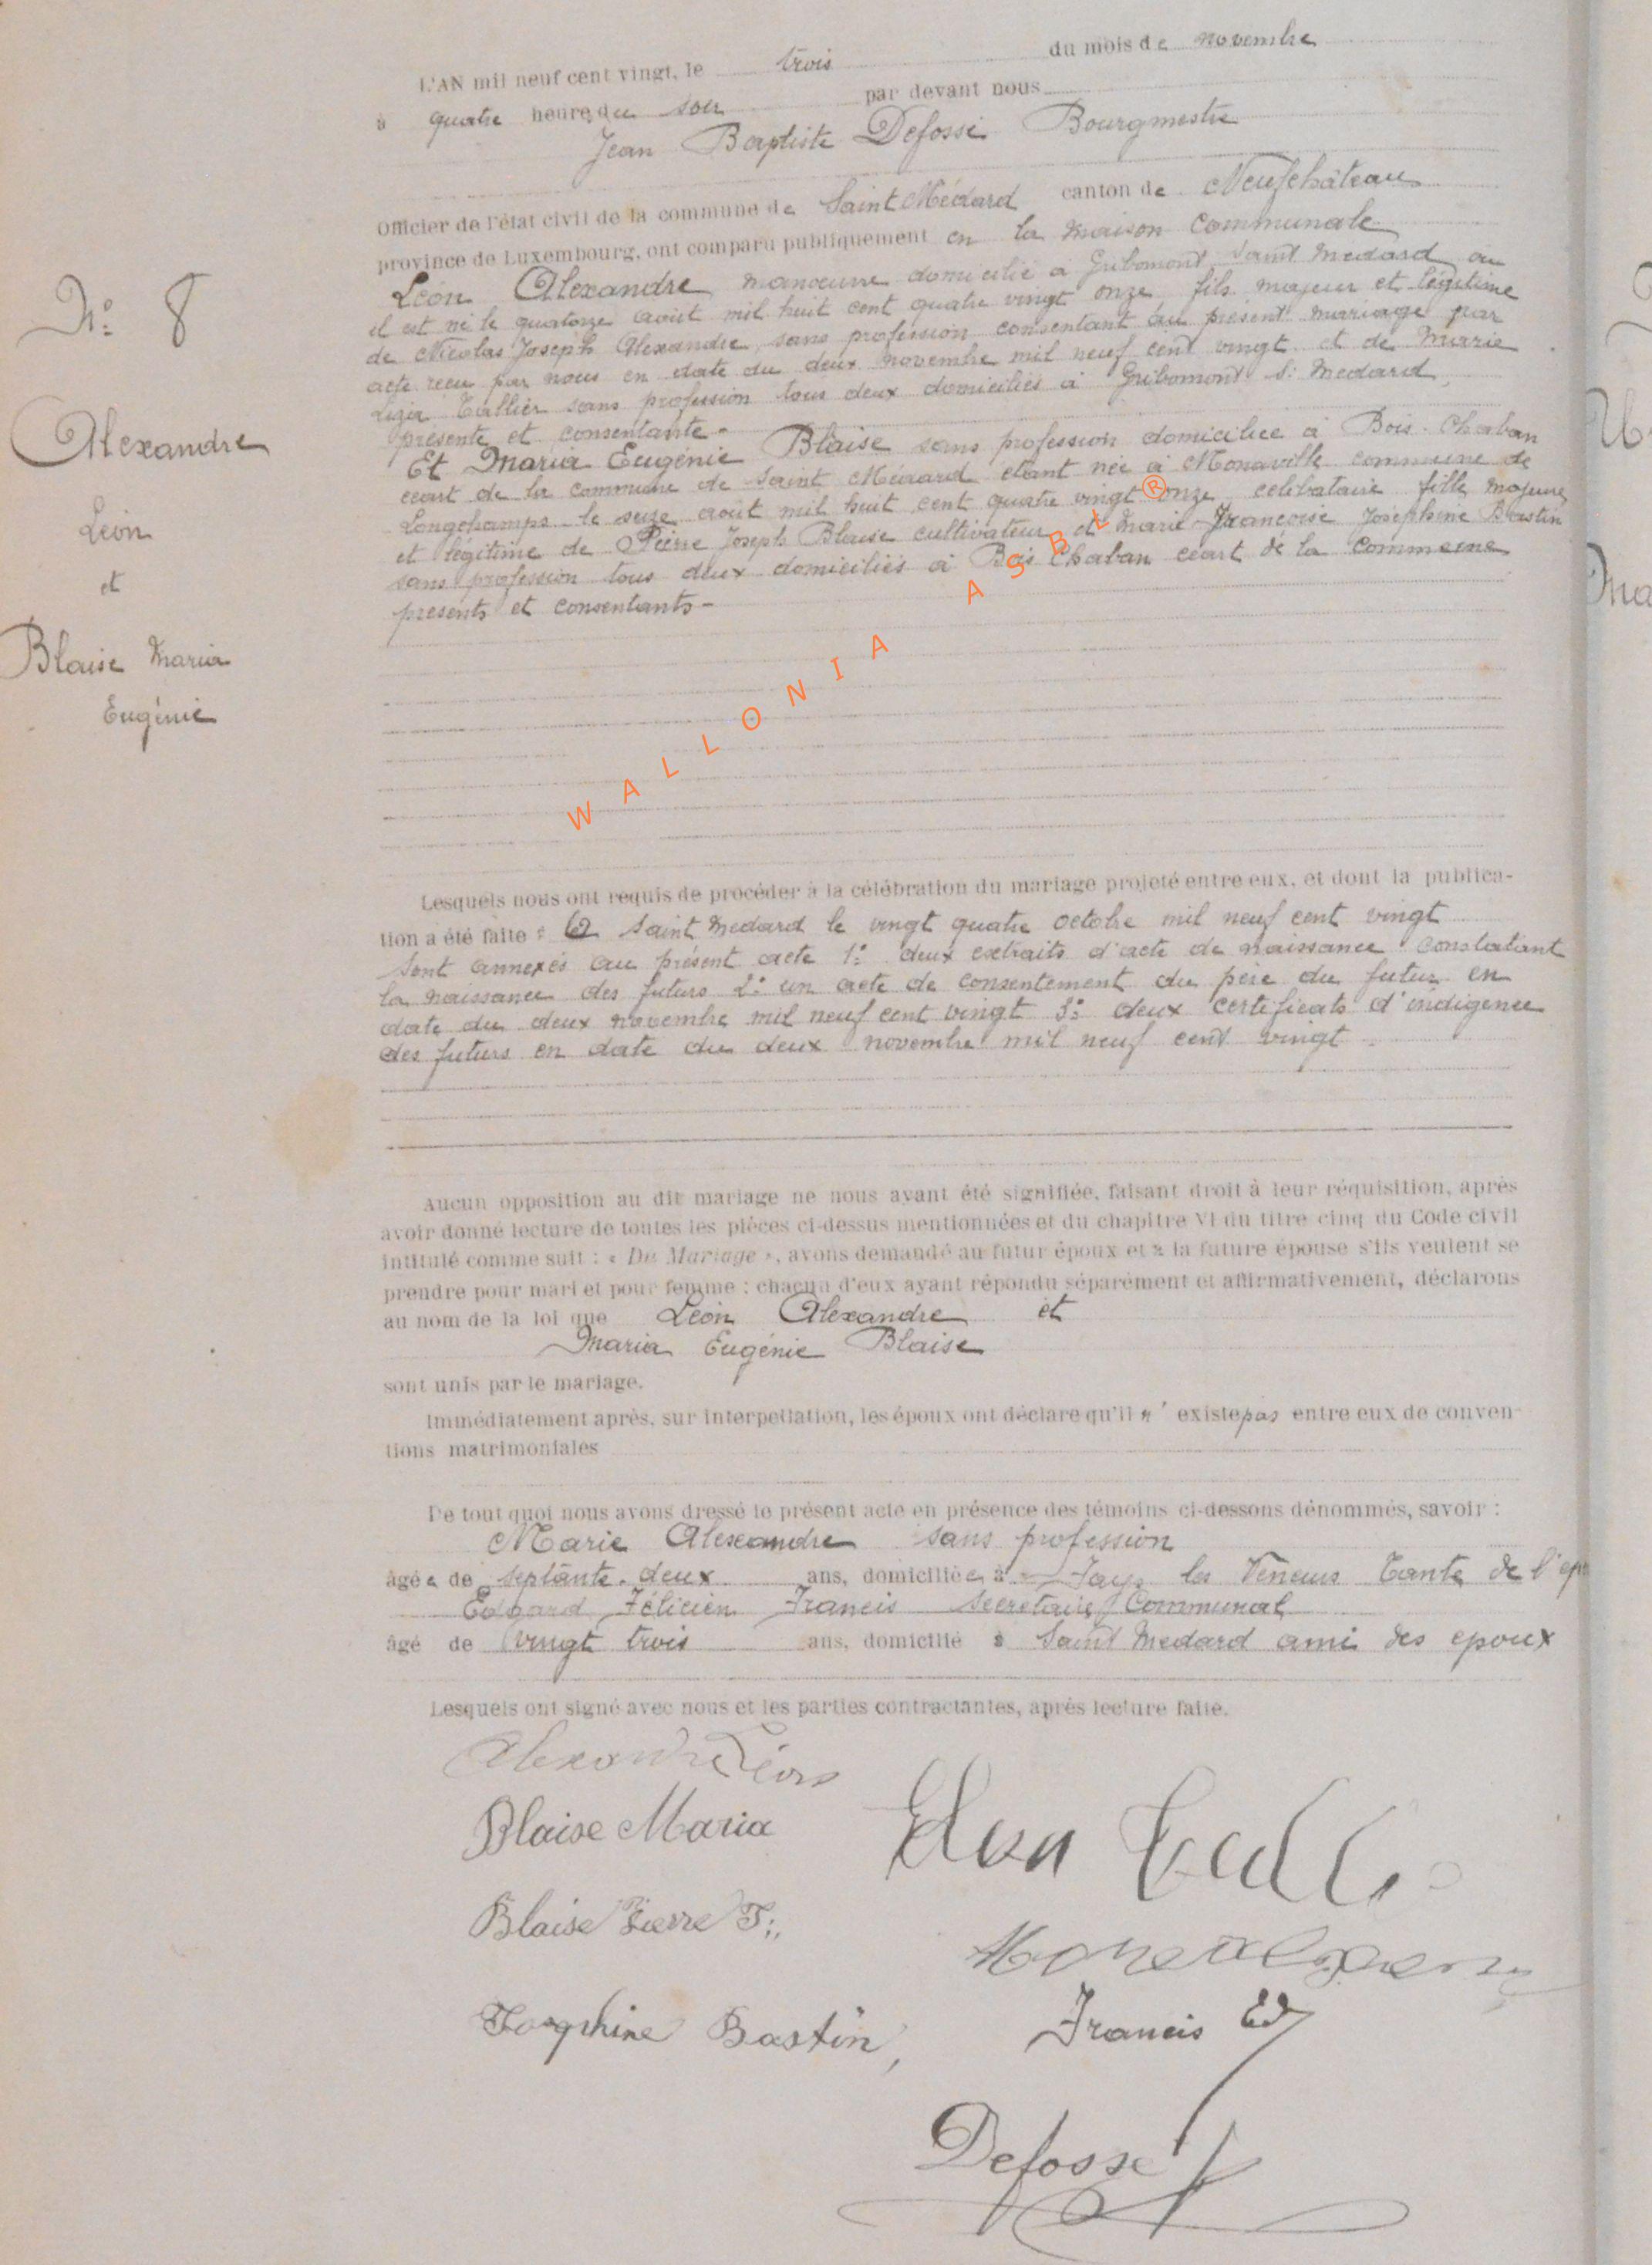 L'AN mil neuf cent vingt, le trois du mois de novembre
à quatre heure du soir par devant nous
Jean Baptiste Defossé Bourgmestre
Officier de l'état civil de la commune de Saint Médard canton de Neufchâteau
province de Luxembourg, ont comparu publiquement en la maison communale
Léon Alexandre manoeuvre domicilié à Gribomont Saint Médard où
il est né le quatorze août mil huit cent quatre vingt onze fils majeur et légitime
de Nicolas Joseph Alexandre, sans profession consentant au présent mariage par
acte reçu par nous en date du deux novembre mil neuf cent vingt et de Marie
Tallier sans profession tous deux domiciliés à Gribomont St Medard,
présente et consentante -
Et Maria Eugénie Blaise sans profession domiciliée à Bois Chaban
écart de la commune de Saint Médard étant née à Monaville commune de
Longchamps le seize août mil huit cent quatre vingt onze célibataire fille majeure
et légitime de Pierre Joseph Blaise cultivateur et Marie Françoise Joséphine Bastin
sans profession tous deux domiciliés à Bois Chaban écart de la commune
présents et consentants -
N° 8
Alexandre
Léon
et
Blaise Maria
Eugénie
WALLONIA ASBL ®
Lesquels nous ont requis de procéder à la célébration du mariage projeté entre eux, et dont la publica-
tion a été faite : à Saint Medard le vingt quatre octobre mil neuf cent vingt
Sont annexés au présent acte 1° deux extraits d'acte de naissance constatant
la naissance des futurs 2° un acte de consentement du père du futur en
date du deux novembre mil neuf cent vingt 3° deux certificats d'indigence
des futurs en date du deux novembre mil neuf cent vingt.
Aucun opposition au dit mariage ne nous ayant été signifiée, faisant droit à leur réquisition, après
avoir donné lecture de toutes les pièces ci-dessus mentionnées et du chapitre VI du titre cinq du Code civil
intitulé comme suit : « Du Mariage », avons demandé au futur époux et à la future épouse s'ils veulent se
prendre pour mari et pour femme : chacun d'eux ayant répondu séparément et affirmativement, déclarons
au nom de la loi que Léon Alexandre et
Maria Eugénie Blaise
sont unis par le mariage.
Immédiatement après, sur interpellation, les époux ont déclaré qu'il n'existe pas entre eux de conven-
tions matrimoniales
De tout quoi nous avons dressé le présent acte en présence des témoins ci-dessons dénommés, savoir :
Marie Alexandre sans profession
âgée de septante-deux ans, domiciliée à Fays les Veneurs Tante de l'ep
Edgard Félicien Francis Secrétaire Communal
âgé de vingt trois ans, domicilié à Saint Medard ami des epoux
Lesquels ont signé avec nous et les parties contractantes, après lecture faite.
Alexandre Léon
Blaise Maria
Blaise Pierre J.
Josephine Bastin,
Francis Ed
Defossé